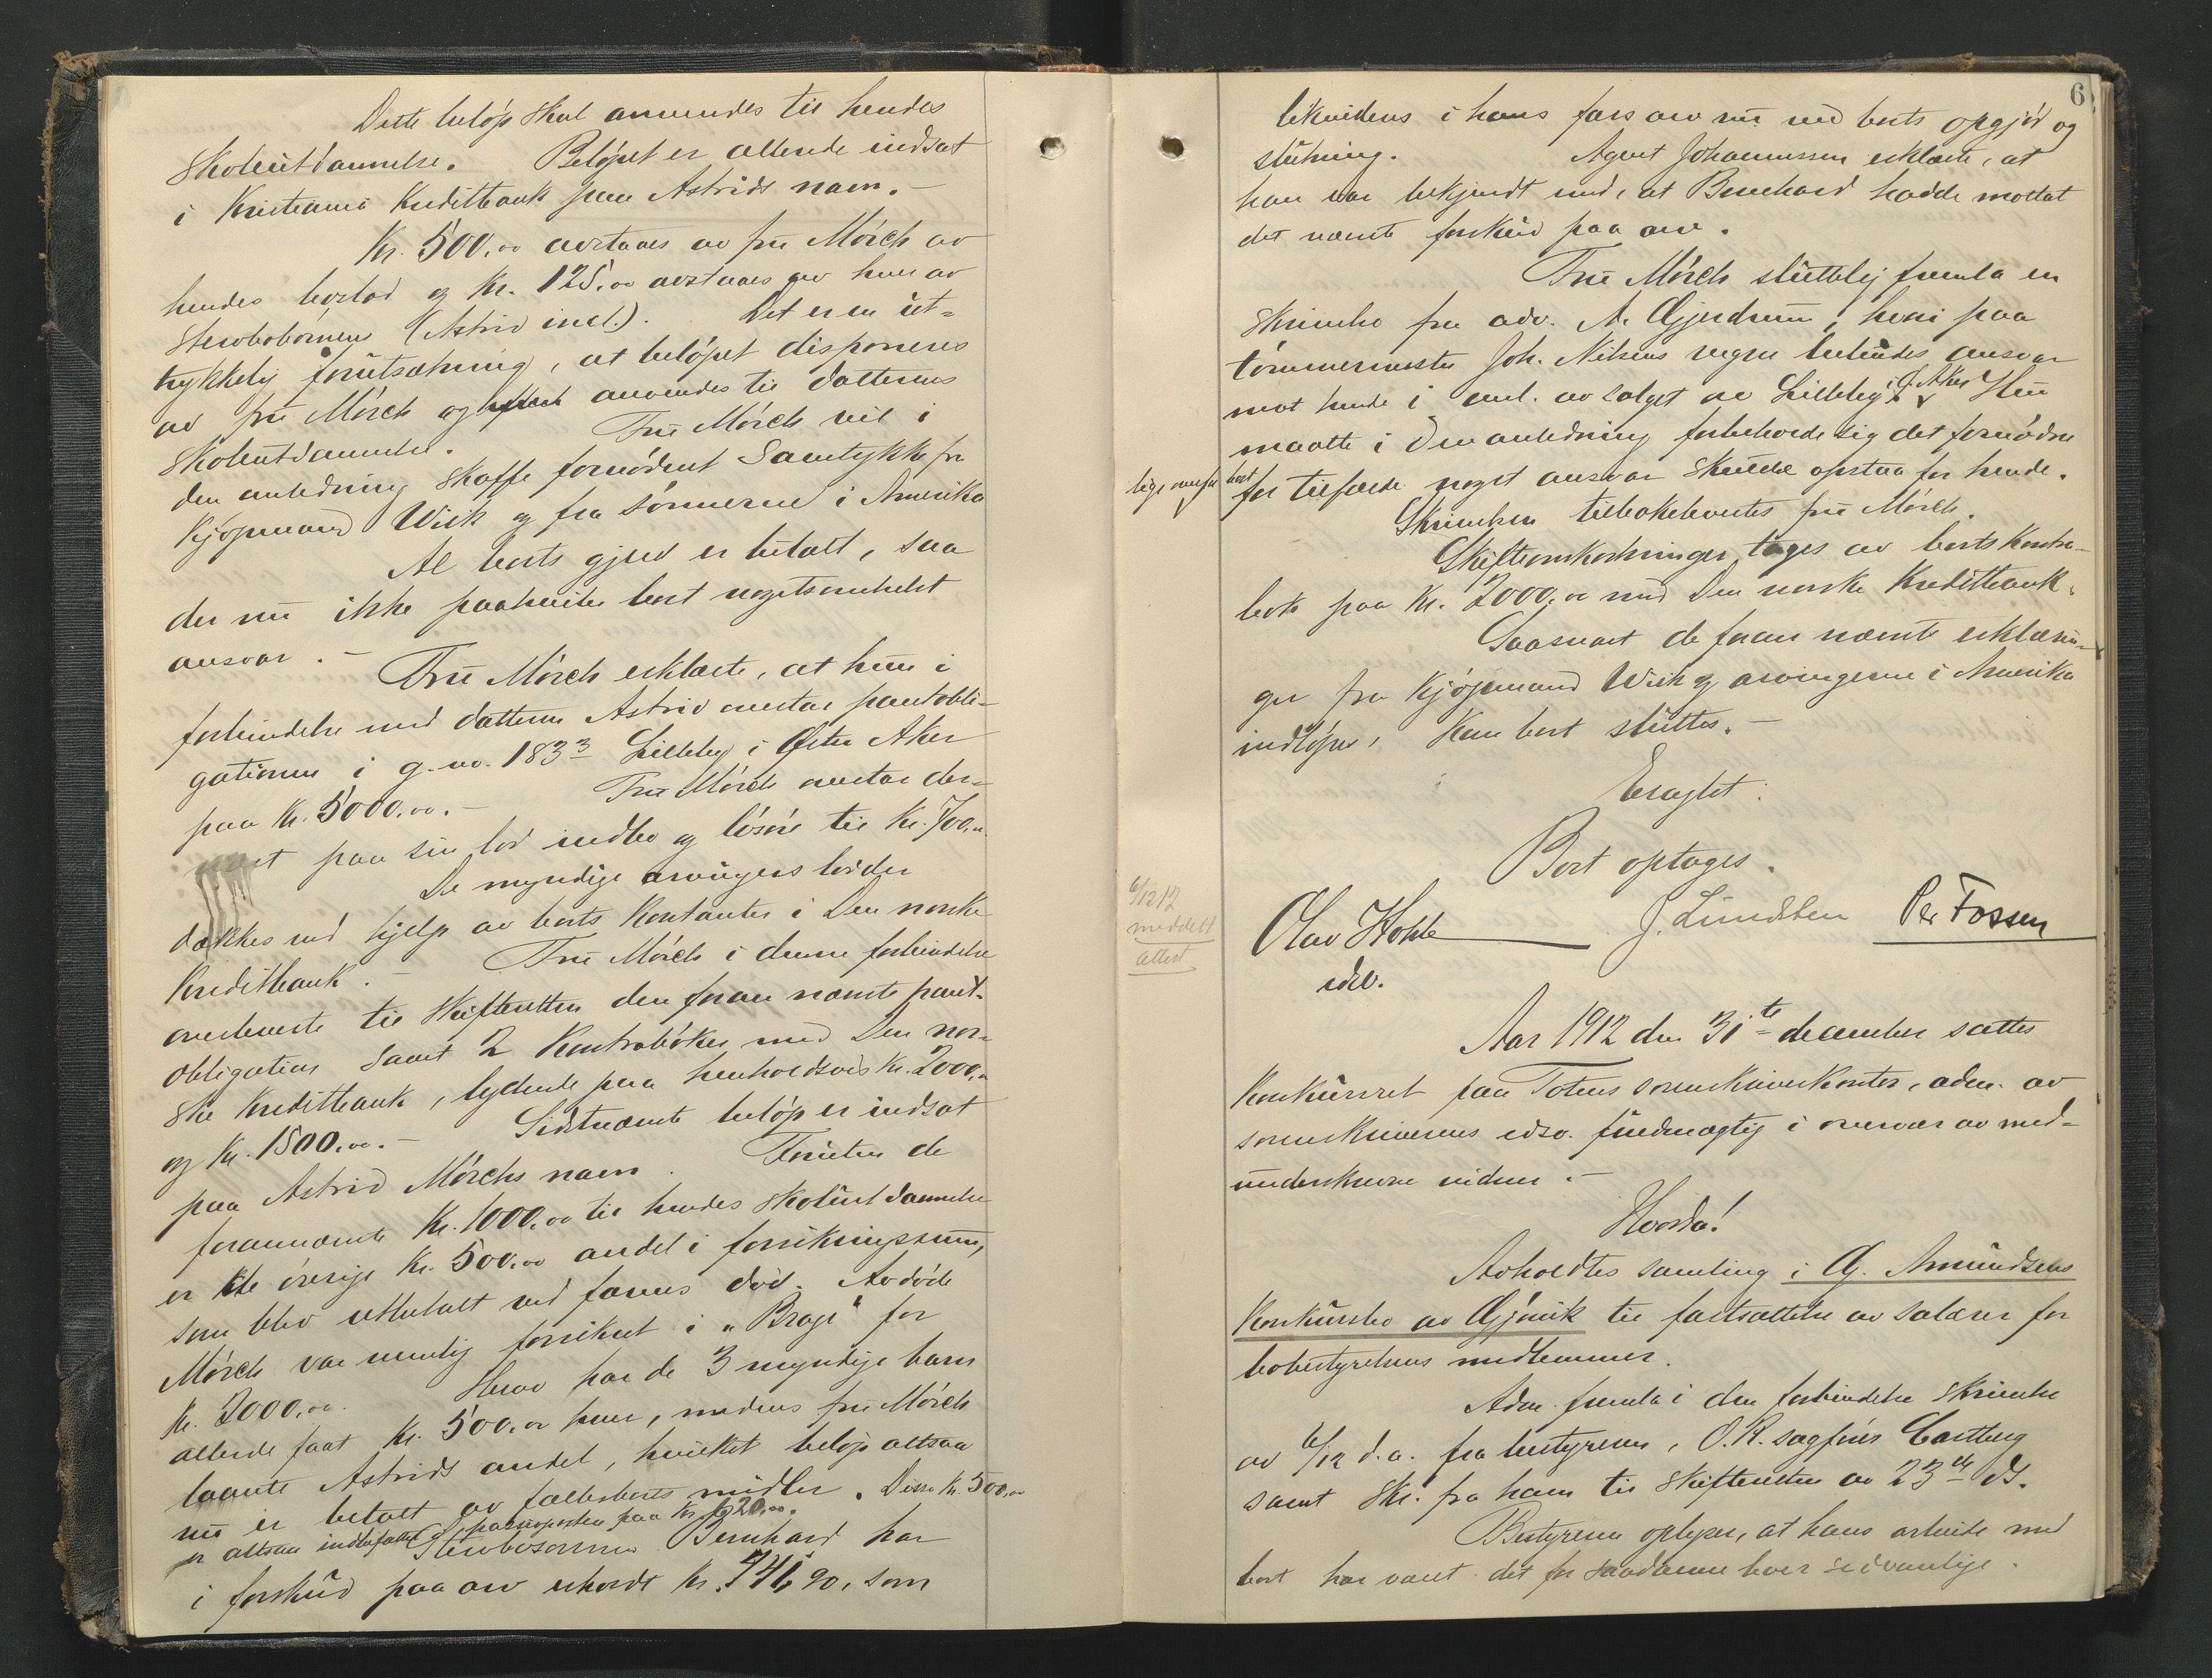 Dette beløp skal anvendes til hendes
skoleutdannelse. Beløpet er allerede indsat
i Kristiania Kreditbank paa Astrids navn.-
Kr. 500.00 avstaaes av fru Mörch av
hendes boslod og Kr. 125.00 avstaaes av hver av
stervbobörnene (Astrid incl.). Det er en ut-
trykkelig forutsætning, at beløpet disponeres
av fru Mörch og anvendes til datterens
skoleutdannelse. Fru Mörch vil i
den anledning skaffe fornödent Samtykke fra
Kjøpmand Wiik og fra sönnerne i Amerika
Al boets gjæld er betalt, saa
der nu ikke paahviler boet nogetsomhelst
ansvar.-
Fru Mörch erklærte, at hun i
forbindelse med datteren Astrid overtar pantobli-
gationen i g.-no. 183³ Lilleby i Østre Aker
paa Kr. 5000.00.- Fru Mörch overtar der-
næst paa sin lod indbo og lösöre til Kr. 700.00
De myndige arvingers lodder
dækkes ved hjelp av boets Kontanter i Den norske
Kreditbank.- Fru Mörch i denne forbindelse
overleverte til skifteretten den foran nævnte pant-
obligation samt 2 Kontraböker med Den nor-
ske Kreditbank, lydende paa henholdsvis Kr. 2000.00
og Kr. 1500.00.- Sidstnævnte beløp er indsat
paa Astrid Mörchs navn. Foruten de
forannævnte Kr. 1000.00 til hendes skoleutdannelse
er de övrige Kr. 500.00 andel i forsikringssum,
som blev utbetalt ved farens död. Avdöde
Mörch var nemlig forsikret i "Brage" for
Kr. 2000.00. Herav har de 3 myndige barn
allerede faat Kr. 500.00 hver, medens fru Mörch
laante Astrids andel, hvilket beløp altsaa
nu er betalt av fællesboets midler. Disse Kr. 500.00
er altsaa indbefattet i passivposten paa Kr. 620.00.
Stervbosönnen Bernhard har
i forskud paa arv erholdt Kr. 746.90, som
6
likvideres i hans fars arv nu ved boets opgjör og
slutning. Agent Johannessen erklærte, at
han var bekjendt med, at Bernhard hadde mottat
det nævnte forskud paa arv.
Fru Mörch sluttelig fremla en
skrivelse fra adv. A. Gjerdrum, hvori paa
tömmermester Joh. Nilsens vegne bebudes ansvar
mot hende i anl. av salget av Lilleby i Ø. Aker. Hun
maatte i den anledning forbeholde sig det fornödne
lige overfor boet for tilfælde noget ansvar skulde opstaa for hende.
Skrivelsen tilbakeleveres fru Mörch.
Skifteomkostninger tages av boets Kontra-
bok paa Kr. 2000.00 med Den norske Kreditbank.
Saasnart de foran nævnte erklærin-
ger fra Kjøpmand Wiik og arvingerne i Amerika
indløper, kan boet sluttes.-
Eragtet:
Boet optages.
6/12 12
meddelt
attest
Olav Hohle J. Lundsten Per Fossen
edsv.
Aar 1912 den 31te december sattes
Konkursret paa Totens sorenskriverkontor, adm. av
sorenskriverens edsv. fuldmægtig i overvær av med-
underskrevne vidner.-
Hvorda!
Avholdtes samling i G. Amundsens
Konkursbo av Gjövik til fastsættelse av salærer for
bobestyrelsens medlemmer.
Adm. fremla i den forbindelse skrivelse
av 6/12 d.a. fra bestyreren, O.R.sagförer Castberg
samt skr. fra ham til skifteretten av 23de ds.
Bestyreren oplyser, at hans arbeide med
boet har været det for saadanne boer sedvanlige.